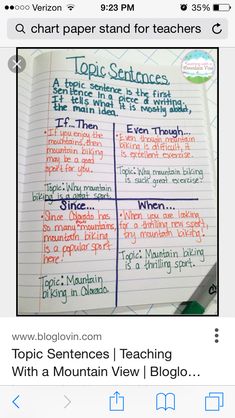 Verizon 9:23 PM 35%
chart paper stand for teachers
Mountain View
Topic Sentences
A topic sentence is the first
sentence in a piece of writing.
It tells what it is mostly about,
the main idea.
If... Then
• If you enjoy the
mountains, then
mountain biking
may be a good
sport for you.
Topic: Why mountain
biking is a great sport.
Even Though...
• Even though mountain
biking is difficult, it
is excellent exercise.
Topic: Why mountain biking
is such great exercise!
Since...
• Since Colorado has
so many mountains,
mountain biking
is a popular sport
here!
Topic: Mountain
biking in Colorado.
When...
• When you are looking
for a thrilling new sport,
try mountain biking!
Topic: Mountain biking
is a thrilling sport.
www.bloglovin.com
Topic Sentences | Teaching
With a Mountain View | Bloglo...